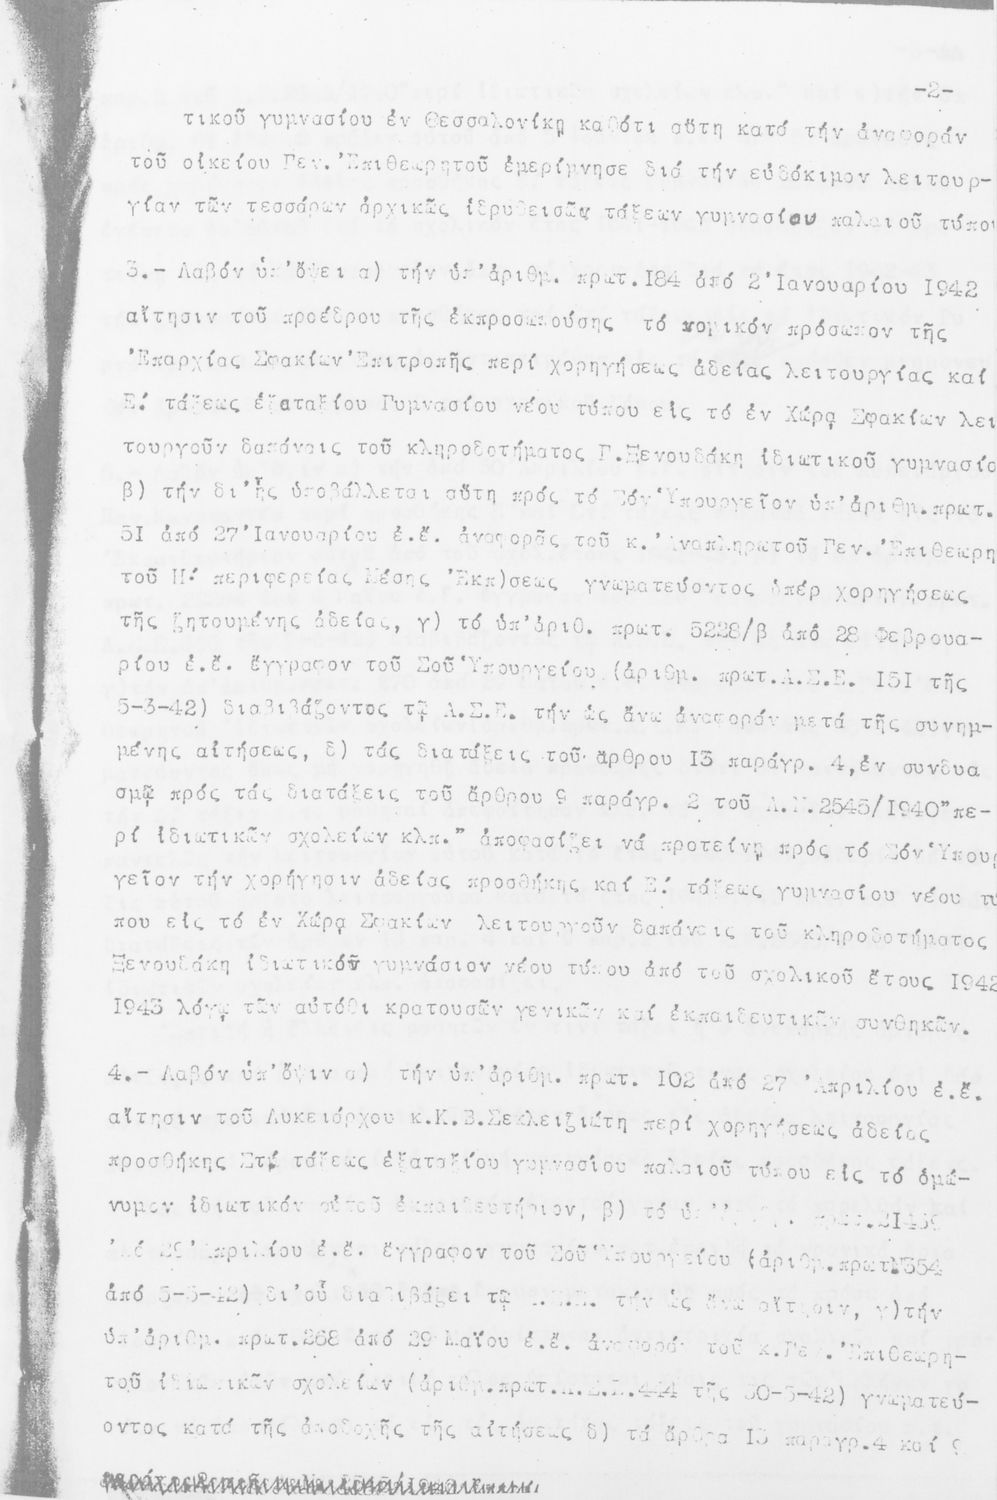 -2-
τικοῦ γυμνασίου ἐν Θεσσαλονίκῃ καθότι αὕτη κατά τήν ἀναφοράν
τοῦ οἰκείου Γεν.Ἐπιθεωρητοῦ ἐμερίμνησε διά τήν εὐδόκιμον λειτουρ-
γίαν τῶν τεσσάρων ἀρχικῶς ἱδρυθεισῶν τάξεων γυμνασίου παλαιοῦ τύπου
3.- Λαβόν ὑπ'ὄψει α) τήν ὑπ'ἀριθμ. πρωτ.184 ἀπό 2 Ἰανουαρίου 1942
αἴτησιν τοῦ προέδρου τῆς ἐκπροσωπούσης τό νομικόν πρόσωπον τῆς
Ἐπαρχίας Σφακίων Ἐπιτροπῆς περί χορηγήσεως ἀδείας λειτουργίας καί
Ε΄. τάξεως ἑξαταξίου Γυμνασίου νέου τύπου εἰς τό ἐν Χώρᾳ Σφακίων λει
τουργοῦν δαπάναις τοῦ κληροδοτήματος Γ.Ξενουδάκη ἰδιωτικοῦ γυμνασίο
β) τήν δι'ἧς ὑποβάλλεται αὕτη πρός τό Σόν Ὑπουργεῖον ὑπ'ἀριθμ.πρωτ.
51 ἀπό 27 Ἰανουαρίου ἐ.ἔ. ἀναφορᾶς τοῦ κ. Ἀναπληρωτοῦ Γεν.Ἐπιθεωρη
τοῦ Η΄ περιφερείας Μέσης Ἐκπ)σεως γνωματεύοντος ὑπέρ χορηγήσεως
τῆς ζητουμένης ἀδείας, γ) τό ὑπ'ἀριθ. πρωτ. 5228/β ἀπό 28 Φεβρουα-
ρίου ἐ.ἔ. ἔγγραφον τοῦ Σοῦ Ὑπουργείου (ἀριθμ. πρωτ.Α.Σ.Ε. 151 τῆς
5-3-42) διαβιβάζοντος τῷ Α.Σ.Ε. τήν ὡς ἄνω ἀναφοράν μετά τῆς συνημ-
μένης αἰτήσεως, δ) τάς διατάξεις τοῦ ἄρθρου 13 παράγρ. 4,ἐν συνδυα
σμῷ πρός τάς διατάξεις τοῦ ἄρθρου 9 παράγρ. 2 τοῦ Α.Ν.2545/1940"πε-
ρί ἰδιωτικῶν σχολείων κλπ." ἀποφασίζει νά προτείνῃ πρός τό Σόν Ὑπουρ
γεῖον τήν χορήγησιν ἀδείας προσθήκης καί Ε΄. τάξεως γυμνασίου νέου τύ
που εἰς τό ἐν Χώρᾳ Σφακίων λειτουργοῦν δαπάναις τοῦ κληροδοτήματος
Ξενουδάκη ἰδιωτικόν γυμνάσιον νέου τύπου ἀπό τοῦ σχολικοῦ ἔτους 1942
1943 λόγῳ τῶν αὐτόθι κρατουσῶν γενικῶν καί ἐκπαιδευτικῶν συνθηκῶν.
4.- Λαβόν ὑπ'ὄψιν α) τήν ὑπ'ἀριθμ. πρωτ. 102 ἀπό 27 Ἀπριλίου ἐ.ἔ.
αἴτησιν τοῦ Λυκειάρχου κ.Κ.Β.Σεκλειζιώτη περί χορηγήσεως ἀδείας
προσθήκης Στ΄ τάξεως ἑξαταξίου γυμνασίου παλαιοῦ τύπου εἰς τό ὁμώ-
νυμον ἰδιωτικόν αὐτοῦ ἐκπαιδευτήριον, β) τό
ἀπό 29 Ἀπριλίου ἐ.ἔ. ἔγγραφον τοῦ Σοῦ Ὑπουργείου (ἀριθμ.πρωτ 354
ἀπό 5-5-42) δι'οὗ διαβιβάζει τῷ Α.Σ.Ε. τήν ὡς ἄνω αἴτησιν, γ)τήν
ὑπ'ἀριθμ. πρωτ.268 ἀπό 29 Μαΐου ἐ.ἔ. ἀναφοράν τοῦ κ.Γεν.Ἐπιθεωρη-
τοῦ ἰδιωτικῶν σχολείων (ἀριθμ.πρωτ.Α.Σ.Ε.444 τῆς 30-5-42) γνωματεύ-
οντος κατά τῆς ἀποδοχῆς τῆς αἰτήσεως δ) τά ἄρθρα 13 παραγρ.4 καί 9